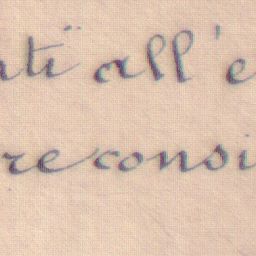 ati all'e
re consi